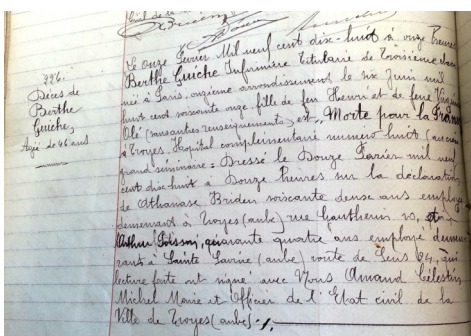 226.
Décès de
Berthe
Guiche,
Agée de 46 ans
Le onze Février Mil neuf cent dix-huit à onze heures
Berthe Guiche Infirmière Titulaire de Troisième classe
née à Paris, onzième arrondissement le six Juin mil
huit cent soixante onze fille de feu Henri et de feue Virginie
Olé (sans autres renseignements) est "Morte pour la France
à Troyes Hopital complémentaire numéro huit (ancien
grand séminaire = Dressé le Douze Février mil neuf
cent dix-huit à Douze heures sur la déclaration
de Athanase Briden soixante douze ans employé
demeurant à Troyes (aube) rue Gauthern 20, et
Arthur Poisson, quarante quatre ans employé demeu
rant à Sainte Savine (aube) route de Sens 64, qui
lecture faite ont signé avec Nous Amand Célestin
Michel Marie et Officier de l'Etat civil de la
Ville de Troyes (aube)./.